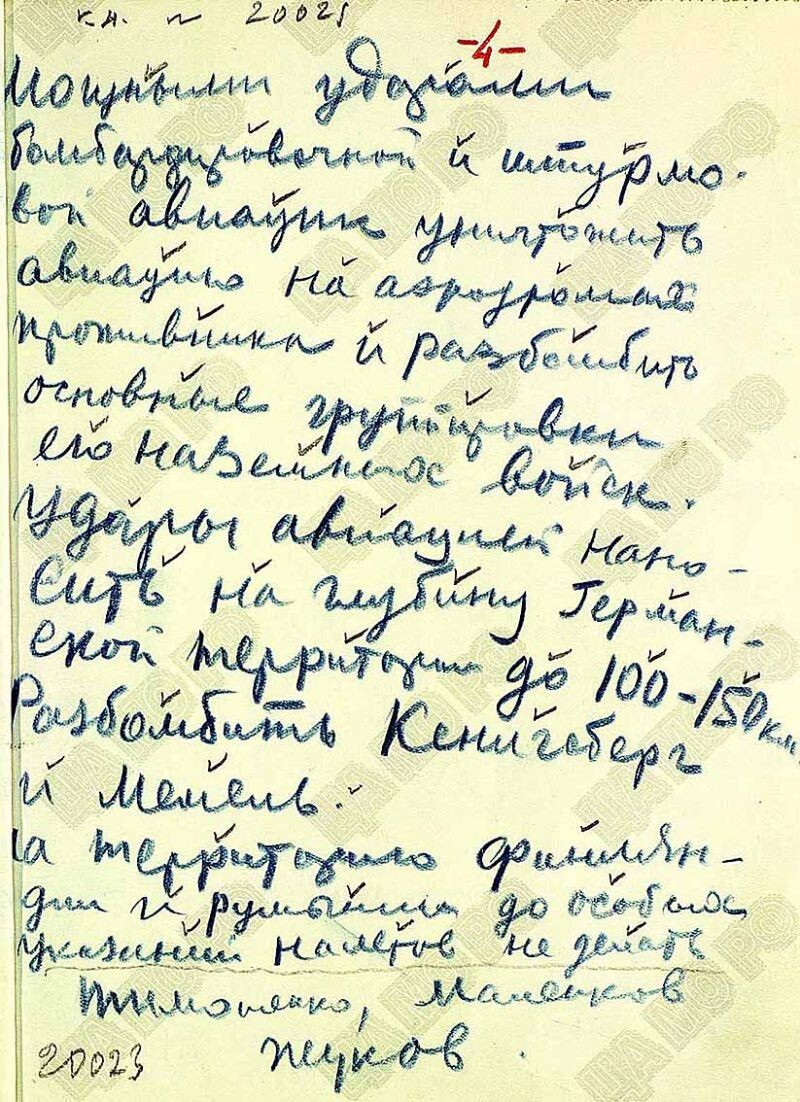 к.н. № 20025
-4-
Мощными ударами
бомбардировочной и штурмо-
вой авиации уничтожить
авиацию на аэродромах
противника и разбомбить
основные группировки
его наземных войск.
Удары авиацией нано-
сить на глубину Герман-
ской территории до 100-150 км.
Разбомбить Кенигсберг
и Мемель.
на территорию Финлян-
дии и румынии до особых
указаний налетов не делать
Тимошенко, Маленков
20023 Жуков.
ЦА МО РФ